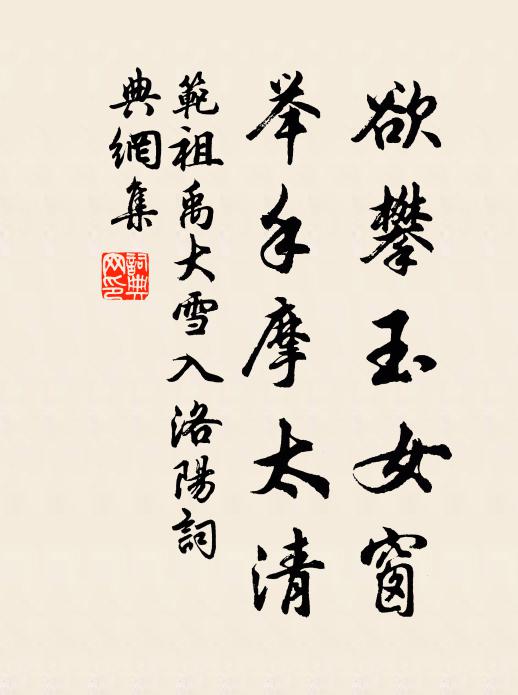 欲攀玉女窗
举手摩太清
範祖禹大雪入洛陽詞
典網集
詞典网印